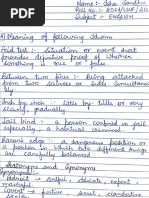 Name :- Isha Sandhu
Roll no. :- 8028/
Subject :- ENGLISH
A) Meaning of following Idioms
Acid test :- Situation or event that
provides definitive proof of whether
something is true or false.
Between two fires :- Being attacked
from two sources or sides simultaneously
Inch by inch :- little by little or very
slowly, gradually
Jail bird :- A person confined in jail
especially, a habitual criminal
Razor's edge :- a dangerous
position in which two different things
are carefully balanced
Antonyms and Synonyms
Synonyms :-
skilful, delicate, expert,
masterful
Covert : furtive, secret, clandestine